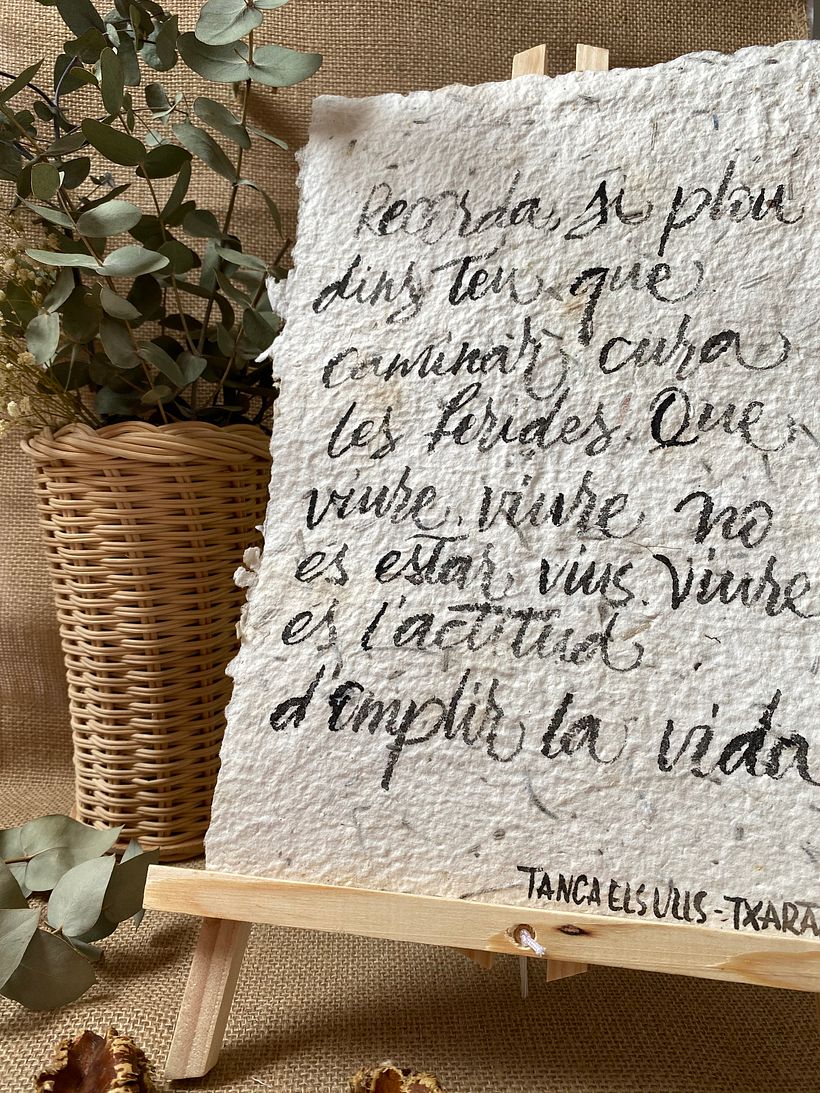 Recorda, si plou
dins teu que
caminar cura
les ferides. Que
viure, viure no
és estar vius. Viure
és l'actitud
d'omplir la vida
TANCA ELS ULLS - TXARA